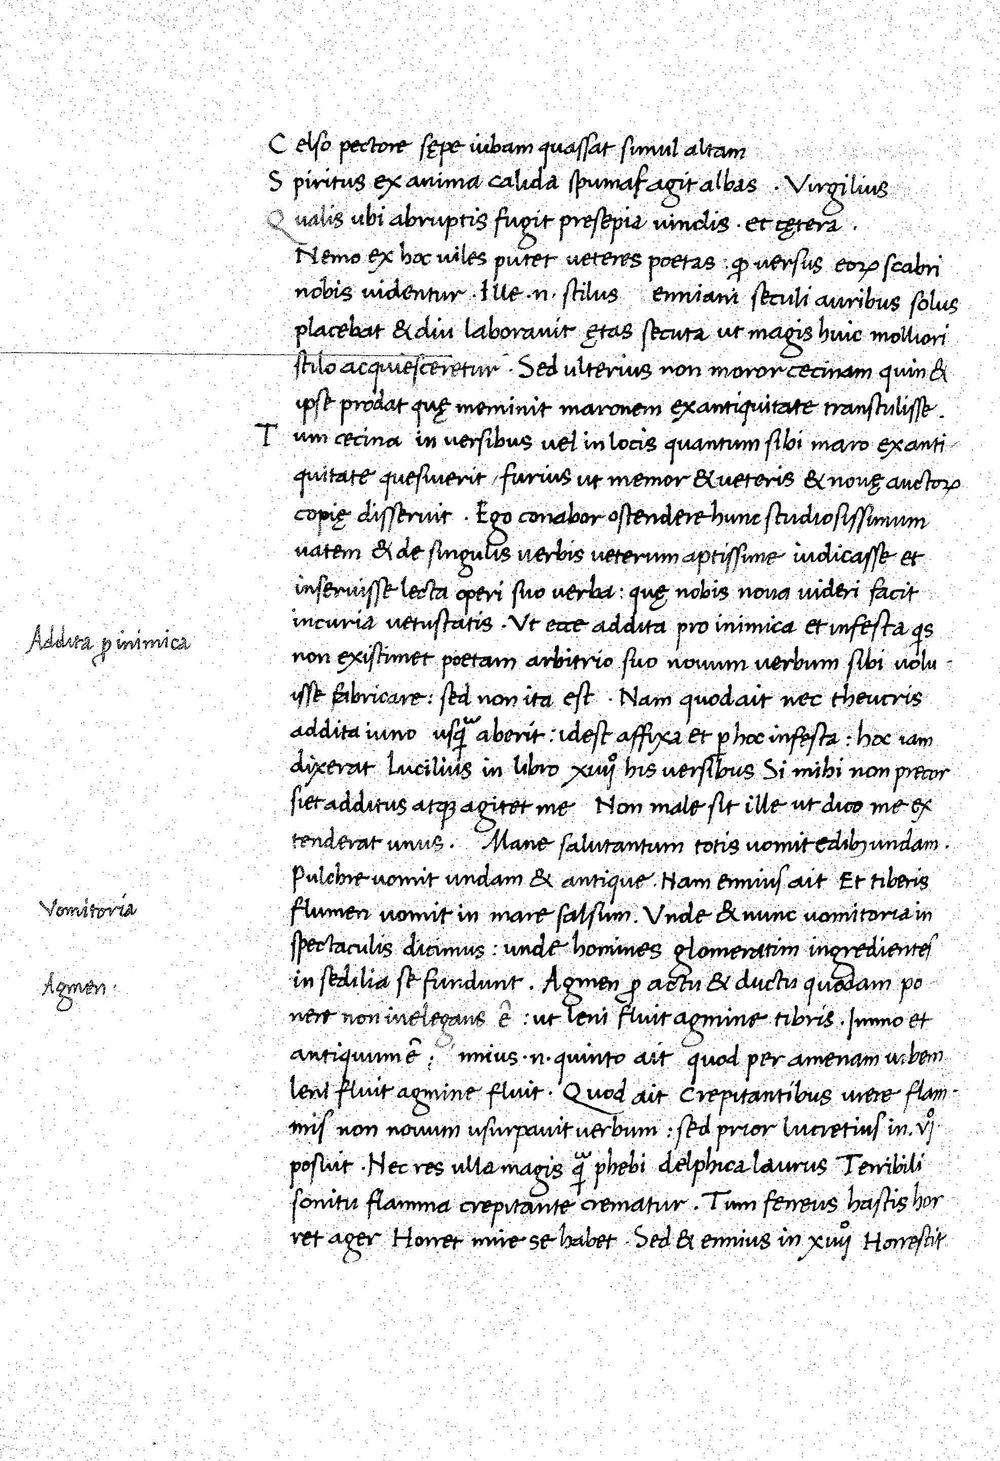 Celso pectore sępe iubam quassat simul altam
Spiritus ex anima calida spumas agit albas . Virgilius
Qualis ubi abruptis fugit presepia uinclis . et cętera .
Nemo ex hoc uiles putet ueteres poetas : ꝙ versus eoꝝ scabri
nobis uidentur . Ille .n. stilus enniani seculi auribus solus
placebat & diu laborauit ętas secuta ut magis huic molliori
stilo acquiesceretur . Sed ulterius non moror cecinam quin &
ipse prodat quę meminit maronem ex antiquitate transtulisse .
Tum cecina in uersibus uel in locis quantum sibi maro ex anti
quitate quesiuerit , furius ut memor & ueteris & nouę auctoꝝ
copię disseruit . Ego conabor ostendere hunc studiosissimum
uatem & de singulis uerbis ueterum aptissime iudicasse et
inseruisse lecta operi suo uerba : quę nobis noua uideri facit
incuria uetustatis . Ut ecce addita pro inimica et infesta qis
Addita ꝓ inimica
non existimet poetam arbitrio suo nouum uerbum sibi uolu -
isse fabricare : sed non ita est . Nam quod ait nec theucris
addita iuno usq̃ aberit : idest affixa et ꝑ hoc infesta : hoc iam
dixerat Lucilius in libro xiiijº his uersibus Si mihi non precor
siet additus atqꝫ agitet me Non male sit ille ut dico me ex
tenderat unus . Mane salutantum totis uomit edibꝫ undam .
Pulchre uomit undam & antique . Nam ennius ait Et tiberis
Vomitoria
flumen uomit in mare salsum . Unde & nunc uomitoria in
spectaculis dicimus : unde homines glomeratim ingredientes
Agmen .
in sedilia se fundunt . Agmen ꝓ actu & ductu quodam po
nere non inelegans ē : ut leni fluit agmine tibris . Immo et
antiquum ē : .n. quinto ait quod per amenam urbem
leni fluit agmine fluit . Quod ait Crepitantibus urere flam -
mis non nouum usurpauit uerbum : sed prior lucretius in . vjº
posuit . Nec res ulla magis q̃ phebi delphica laurus Terribili
sonitu flamma crepitante crematur . Tum ferreus hastis hor
ret ager Horret mire se habet . Sed & ennius in xiiijº Horrescit